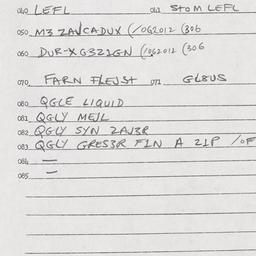 040 LEFL 041 STOM LEFL
050 M3 ZAVCADUX (/062012 (306
060 DUR-X G3Z1GN (/062012 (306
070 FARN FLEJST 071 GL8US
080 QGLE LIQUID
081 QGLY MEJL
082 QGLY SYN ZAV3R
083 QGLY GRES3R FIN A 21P /OF
084 —
085 —